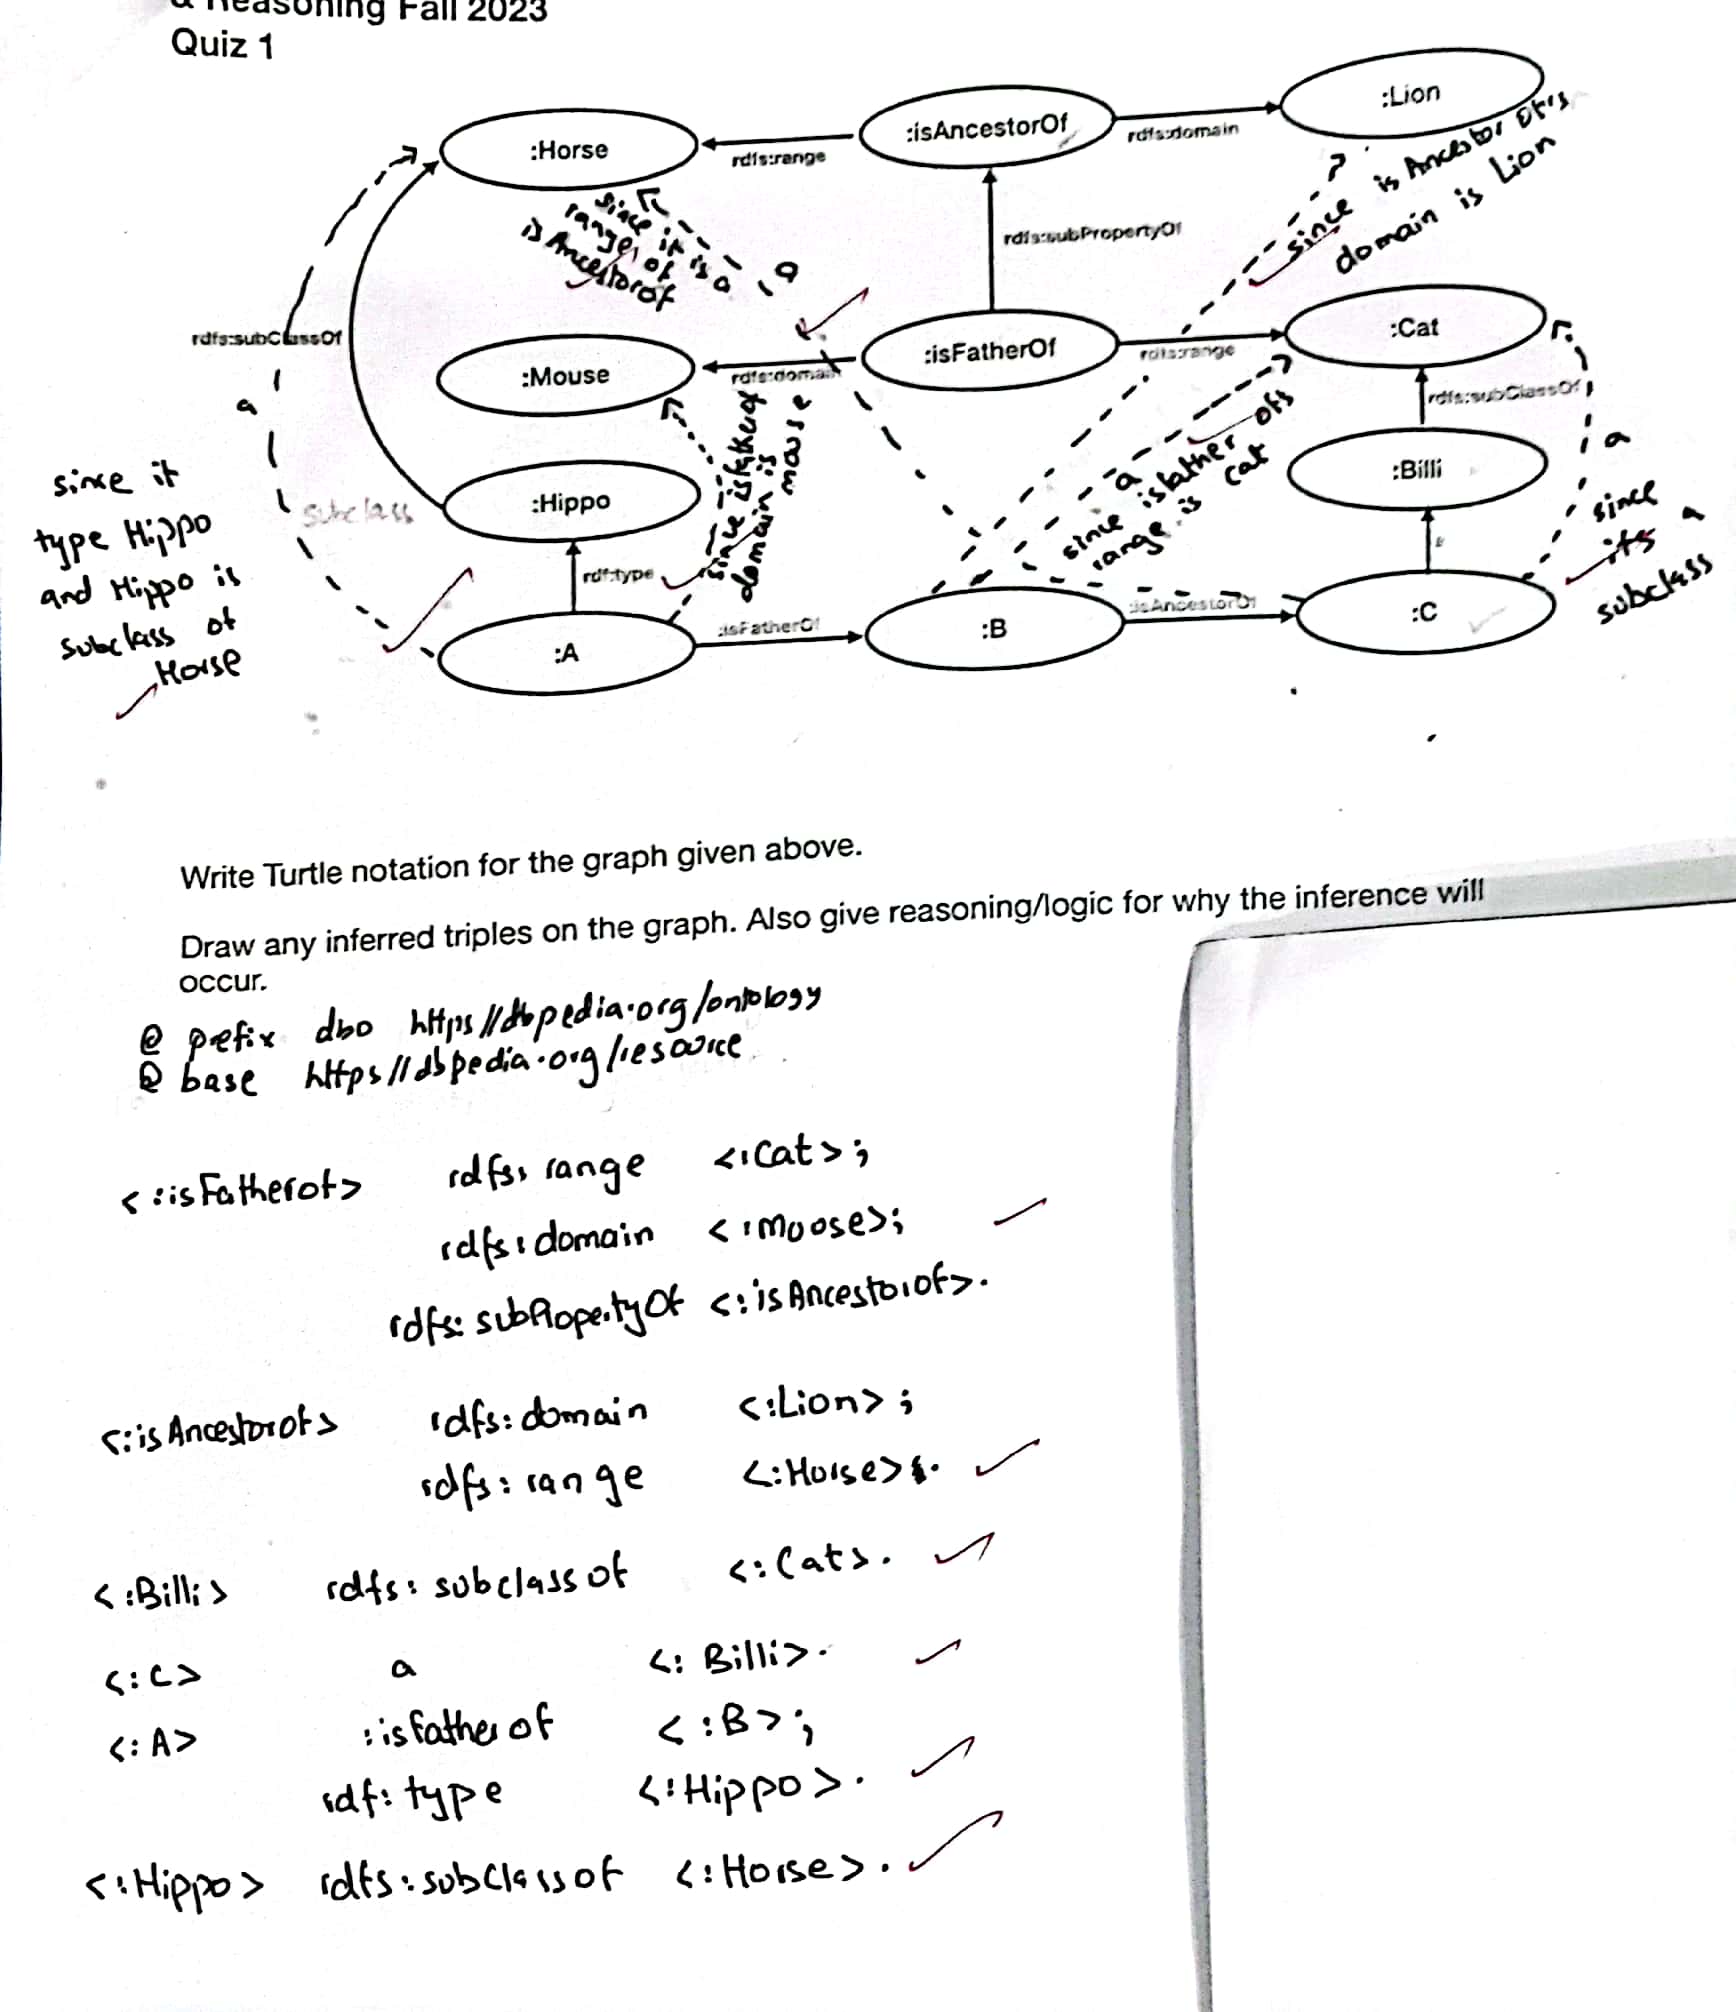 & Reasoning Fall 2023
Quiz 1
:Horse
rdfs:range
:isAncestorOf
rdfs:domain
:Lion
since is Ancestor Of's
domain is Lion
since it is a
range of
is Ancestorof
a
rdfs:subPropertyOf
rdfs:subClassOf
a
:Mouse
rdfs:domain
:isFatherOf
rdfs:range
:Cat
rdfs:subClassOf
a
since isfatherof
domain is mouse
a
since isfather ofs
range is cat
:Billi
since
its a
subclass
since it
type Hippo
and Hippo is
subclass of
Horse
subclass
:Hippo
rdf:type
:A
:isFatherOf
:B
:isAncestorOf
:C
Write Turtle notation for the graph given above.
Draw any inferred triples on the graph. Also give reasoning/logic for why the inference will
occur.
@ prefix dbo https//dbpedia.org/ontology
@ base https//dbpedia.org/resource
<:isFatherof> rdfs: range <:Cat>;
rdfs:domain <:Moose>;
rdfs: subPropertyOf <:isAncestorof>.
<:isAncestorof> rdfs:domain <:Lion>;
rdfs:range <:Horse>.
<:Billi> rdfs: subclassof <:Cat>.
<:C> a <:Billi>.
<:A> :isfatherof <:B>;
rdf:type <:Hippo>.
<:Hippo> rdfs:subclassof <:Horse>.